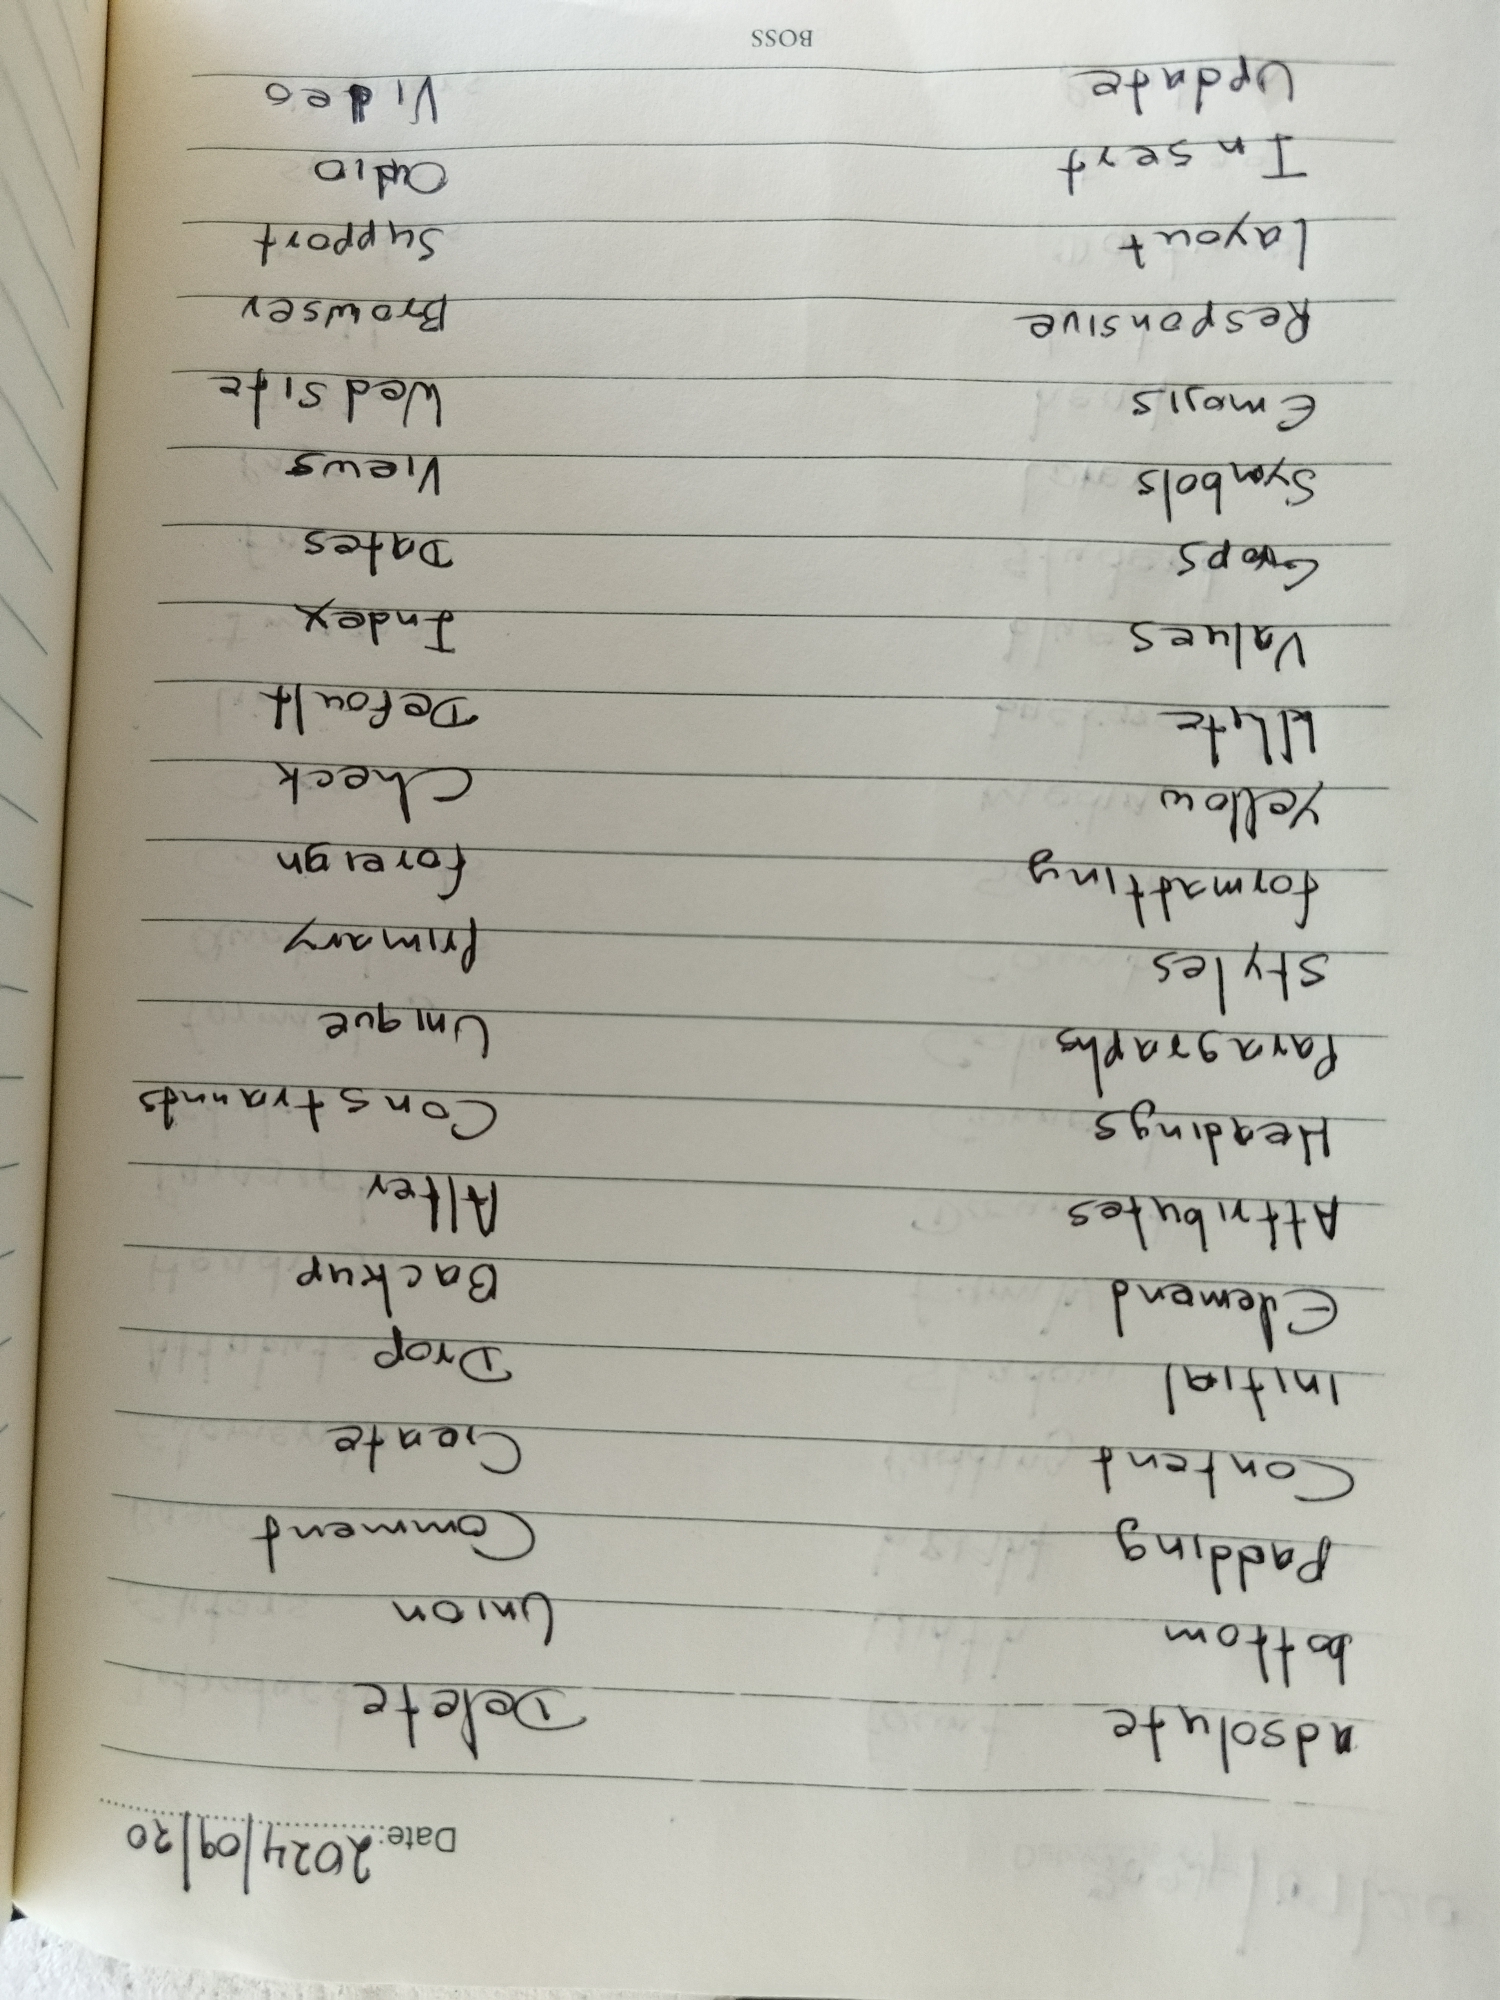 Date: 2024/09/20
adsolute
bottom
Padding
Content
Initial
Elemend
Attributes
Headings
Paragraphs
styles
formatting
yellow
White
Values
Grops
Symbols
Emojis
Responsive
layout
Insert
Update
Delete
Union
Comment
Create
Drop
Backup
Alter
Constrannts
Unique
Primary
foreign
Check
Defoult
Index
Dates
Views
Wed site
Browser
Support
Audio
Video
BOSS